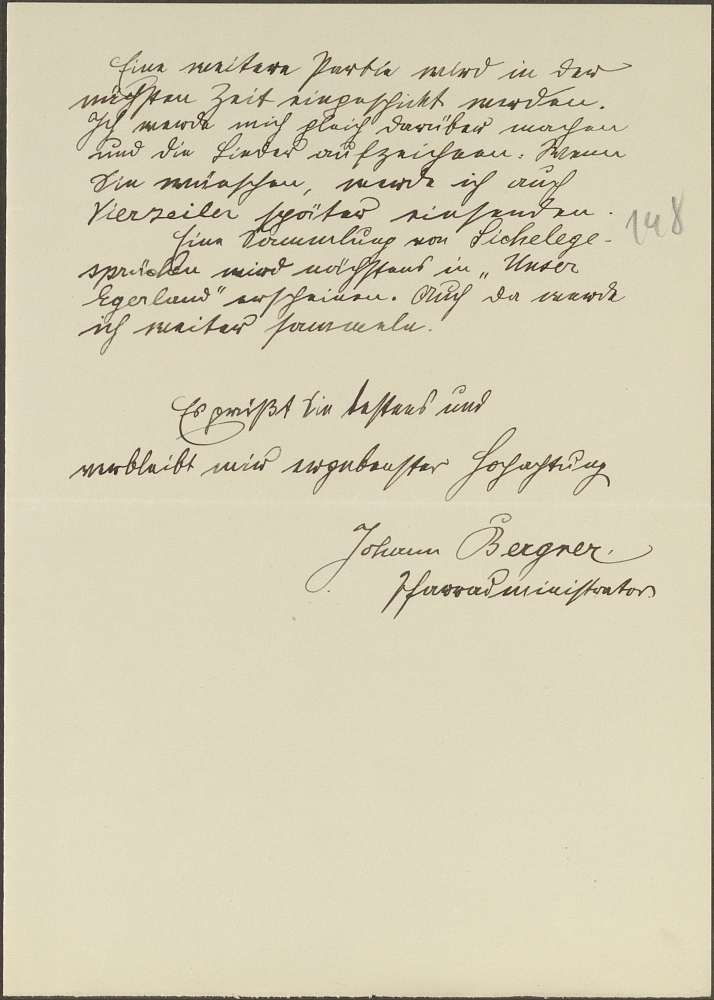 Eine weitere Partie wird in der
nächsten Zeit eingeschickt werden.
Ich werde mich gleich darüber machen
und die Lieder aufzeichnen. Wenn
Sie wünschen, werde ich auch
Vierzeiler später einsenden.
148
Eine Sammlung von Sichelege-
sprüchen wird nächstens in „Unser
Egerland" erscheinen. Auch da werde
ich weiter sammeln.
Es grüßt Sie bestens und
verbleibt mit ergebenster Hochachtung
Johann Bergner.
Pfarradministrator